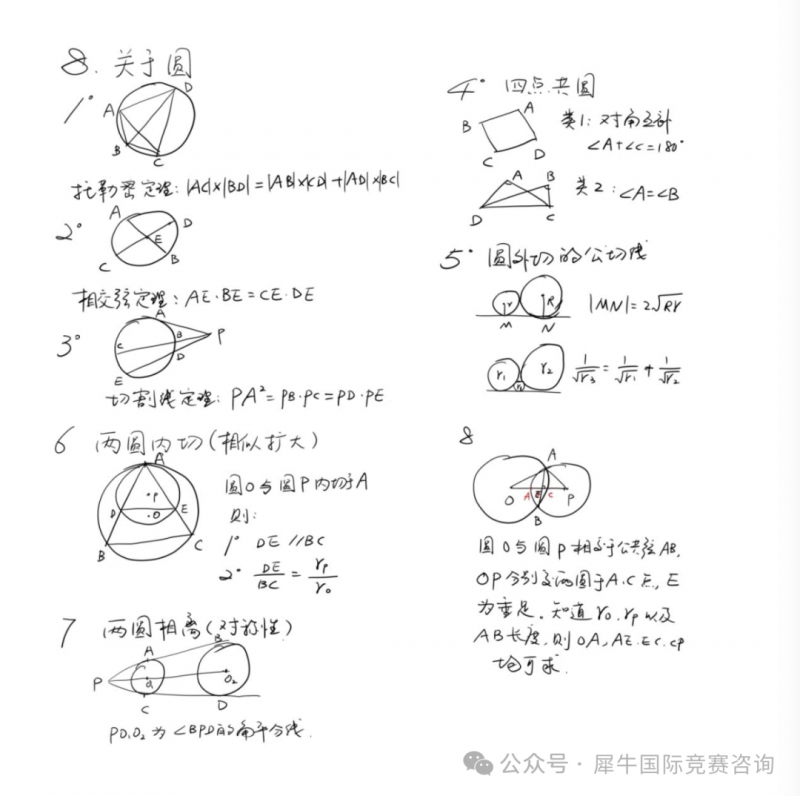 8. 关于圆
1°
A
D
B
C
托勒密定理: |AC|×|BD|=|AB|×|CD|+|AD|×|BC|
2°
A
D
E
C
B
相交弦定理: AE·BE=CE·DE
3°
A
B
P
C
D
E
切割线定理: PA²=PB·PC=PD·PE
6 两圆内切(相似扩大)
A
P
D
O
E
B
C
圆O与圆P内切于A
则:
1° DE//BC
2° DE/BC = rP/rO
7 两圆相离(对称性)
A
B
P
O₁
O₂
C
D
PO₁O₂为∠BPD的角平分线.
4° 四点共圆
B
A
C
D
类1: 对角互补
∠A+∠C=180°
A
B
D
C
类2: ∠A=∠B
5° 圆外切的公切线
r
R
M
N
|MN|=2√Rr
r₁
r₂
r₃
1/√r₃ = 1/√r₁ + 1/√r₂
8
A
O
A
E
C
P
B
圆O与圆P相交于公共弦AB,
OP分别交两圆于A.C点, E
为垂足. 知道rO, rP以及
AB长度, 则OA, AE. EC. CP
均可求.
公众号·犀牛国际竞赛咨询